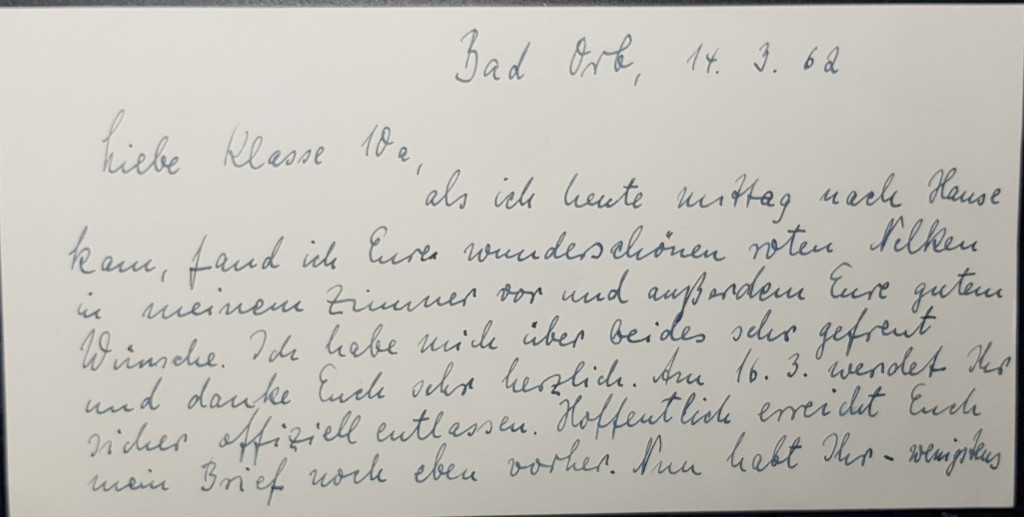 Bad Orb, 14. 3. 62
Liebe Klasse 10a,
als ich heute mittag nach Hause
kam, fand ich Eure wunderschönen roten Nelken
in meinem Zimmer vor und außerdem Eure guten
Wünsche. Ich habe mich über beides sehr gefreut
und danke Euch sehr herzlich. Am 16. 3. werdet Ihr
sicher offiziell entlassen. Hoffentlich erreicht Euch
mein Brief noch eben vorher. Nun habt Ihr - wenigstens